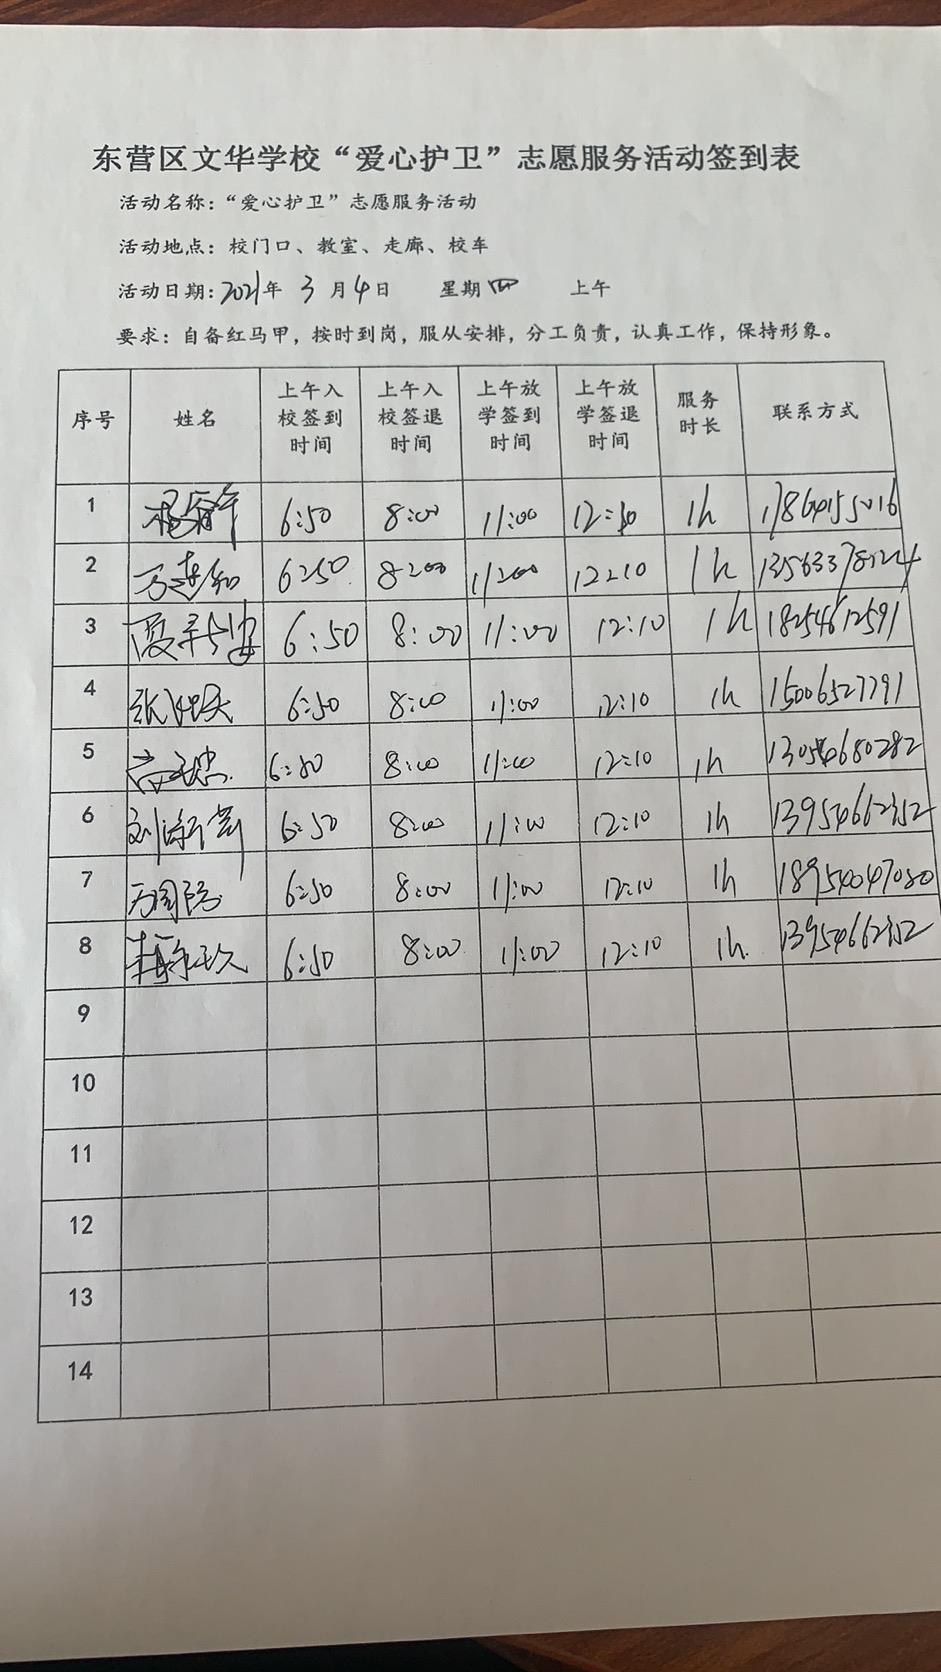 东营区文华学校“爱心护卫”志愿服务活动签到表
活动名称：“爱心护卫”志愿服务活动
活动地点：校门口、教室、走廊、校车
活动日期：2021年 3月4日 星期四 上午
要求：自备红马甲，按时到岗，服从安排，分工负责，认真工作，保持形象。
序号 姓名 上午入校签到时间 上午入校签退时间 上午放学签到时间 上午放学签退时间 服务时长 联系方式
1 6:50 8:00 11:00 1h
2 6:50 8:00 11:00 12:10 1h
3 6:50 8:00 11:00 12:10 1h 18254612591
4 6:50 8:00 11:00 12:10 1h 15006527791
5 8:00 11:00 12:10 1h 13054680282
6 6:50 8:00 11:00 12:10 1h 13954662352
7 6:50 8:00 11:00 12:10 1h 18954047080
8 6:50 8:00 11:00 12:10 1h. 13954662352
9
10
11
12
13
14